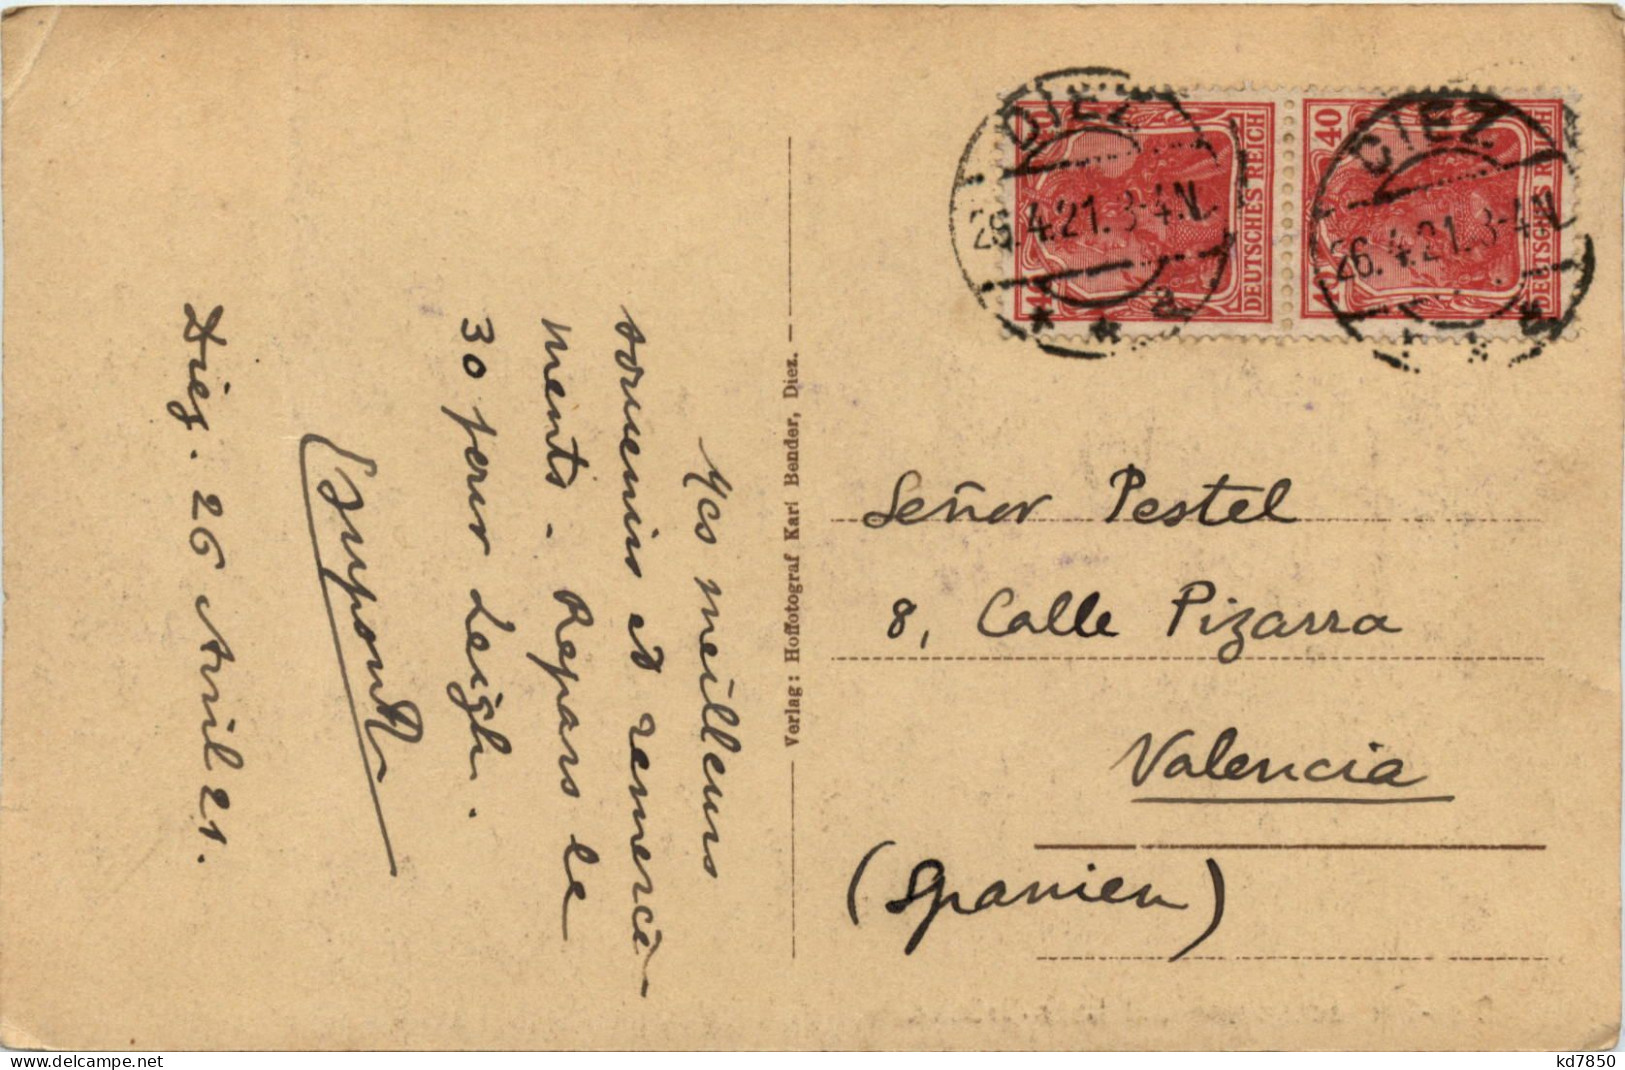 Mes meilleurs
souvenirs et remercie-
ments. Repars le
30 pour Leigh.
Diez. 26 Avril 21.
Verlag: Hoffotograf Karl Bender, Diez.
DIEZ
26.4.21.3-4.N.
a
* *
DEUTSCHES REICH
40
DIEZ
26.4.21.3-4.N.
* *
DEUTSCHES REICH
40
Señor Pestel
8, Calle Pizarra
Valencia
(Spanien)
www.delcampe.net
kd7850